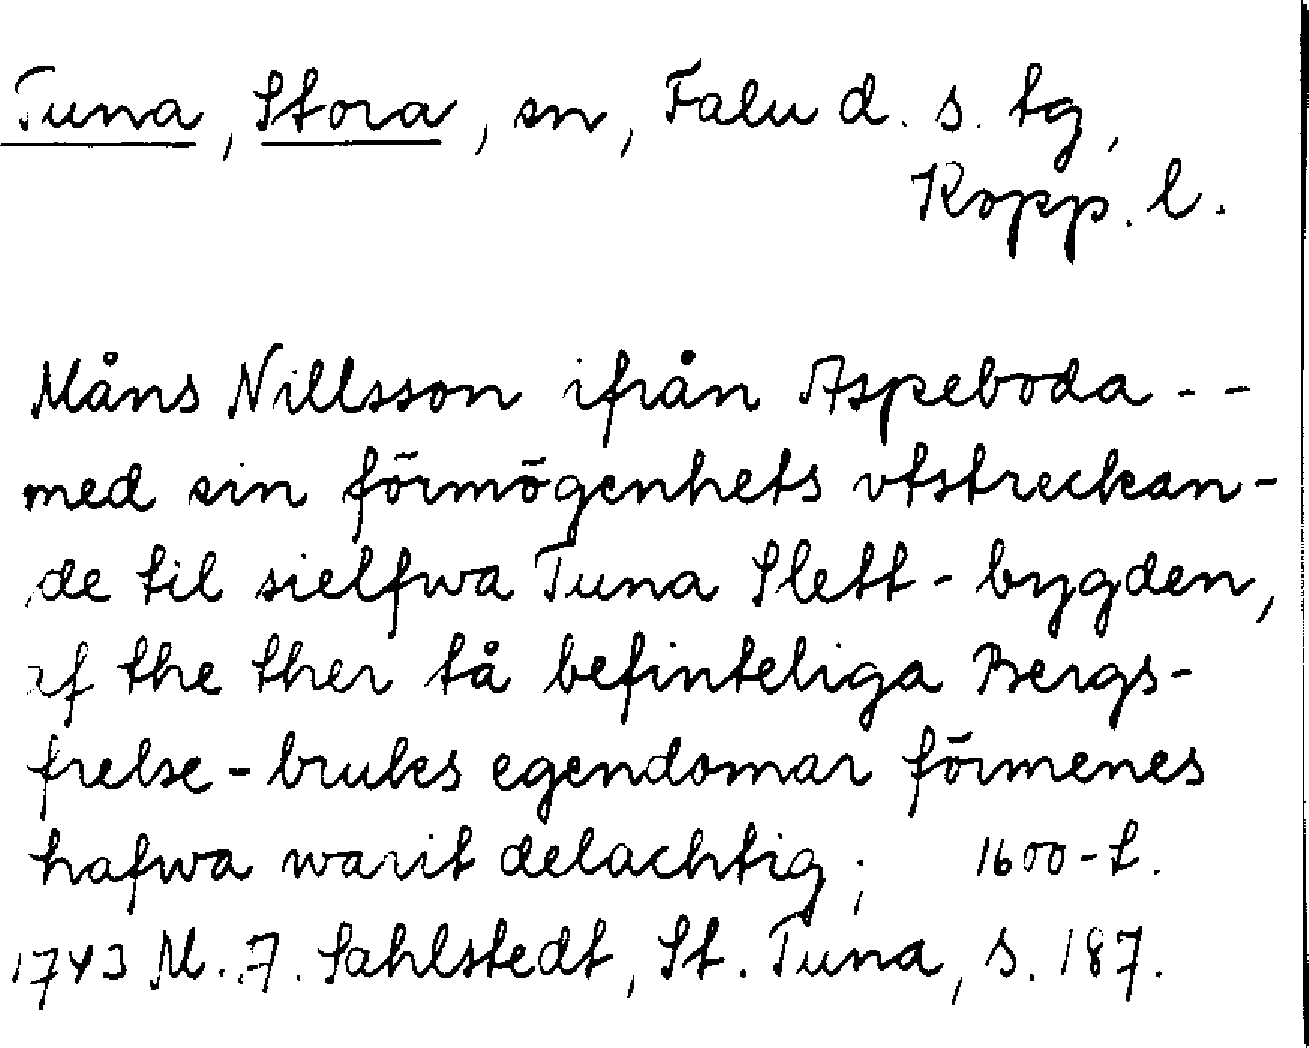 Tuna, Stora, sn, Falu d. s. tg,
Kopp. l.
Måns Nillsson ifrån Aspeboda - -
med sin förmögenhets vtstreckan-
de til sielfwa Tuna Slett-bygden,
af the ther tå befinteliga Bergs-
frelse-bruks egendomar förmenes
hafwa warit delachtig; 1600-t.
1743 M. F. Sahlstedt, St. Tuna, s. 187.